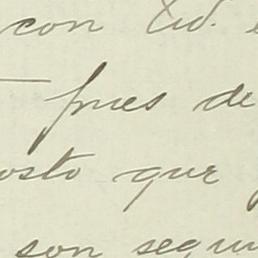 con Ud.
pues de
osto que
son segui